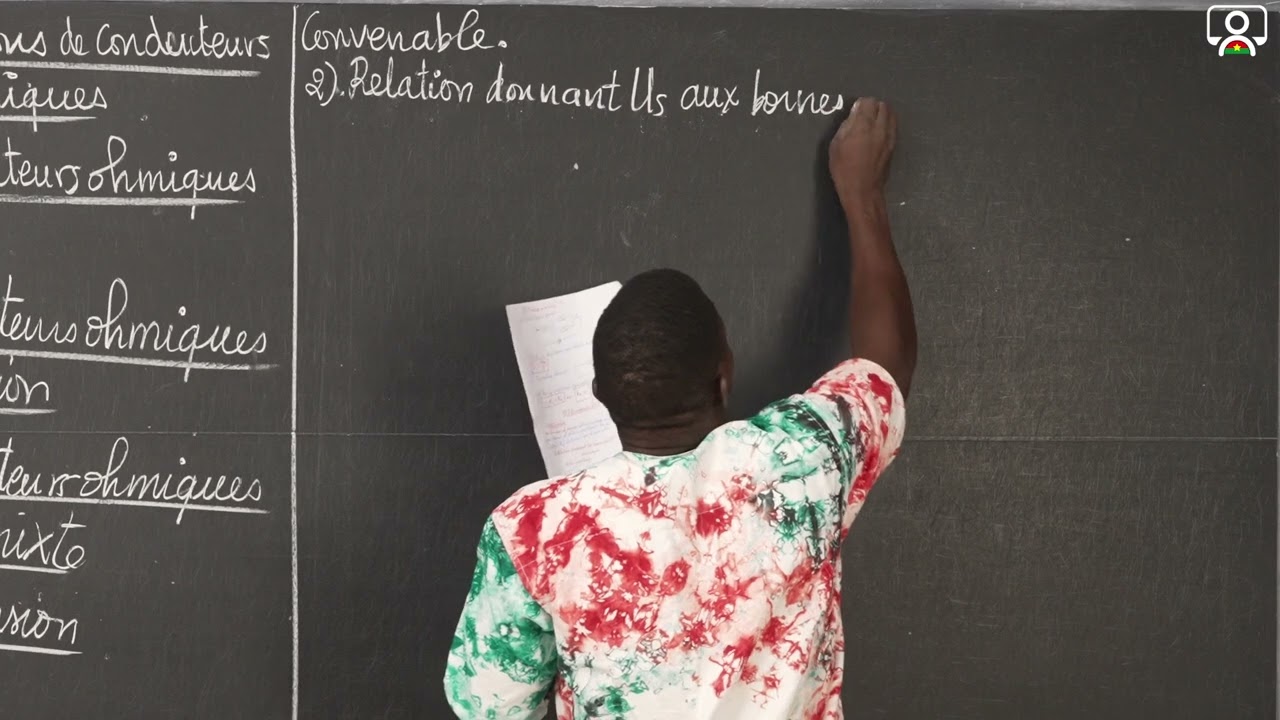 ons de conducteurs
iques
teurs ohmiques
teurs ohmiques
ion
teurs ohmiques
mixte
sion
Convenable.
2). Relation donnant Us aux bornes